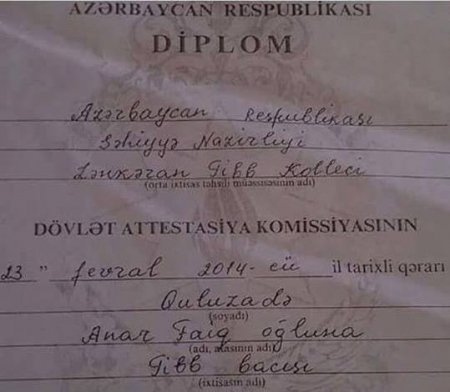 AZƏRBAYCAN RESPUBLİKASI
DİPLOM
Azərbaycan Respublikası
Səhiyyə Nazirliyi
Lənkəran Tibb Kolleci
(orta ixtisas təhsili müəssisəsinin adı)
DÖVLƏT ATTESTASİYA KOMİSSİYASININ
23 " fevral 2014-cü il tarixli qərarı
Quluzadə
(soyadı)
Anar Faiq oğluna
(adı, atasının adı)
Tibb bacısı
(ixtisasın adı)